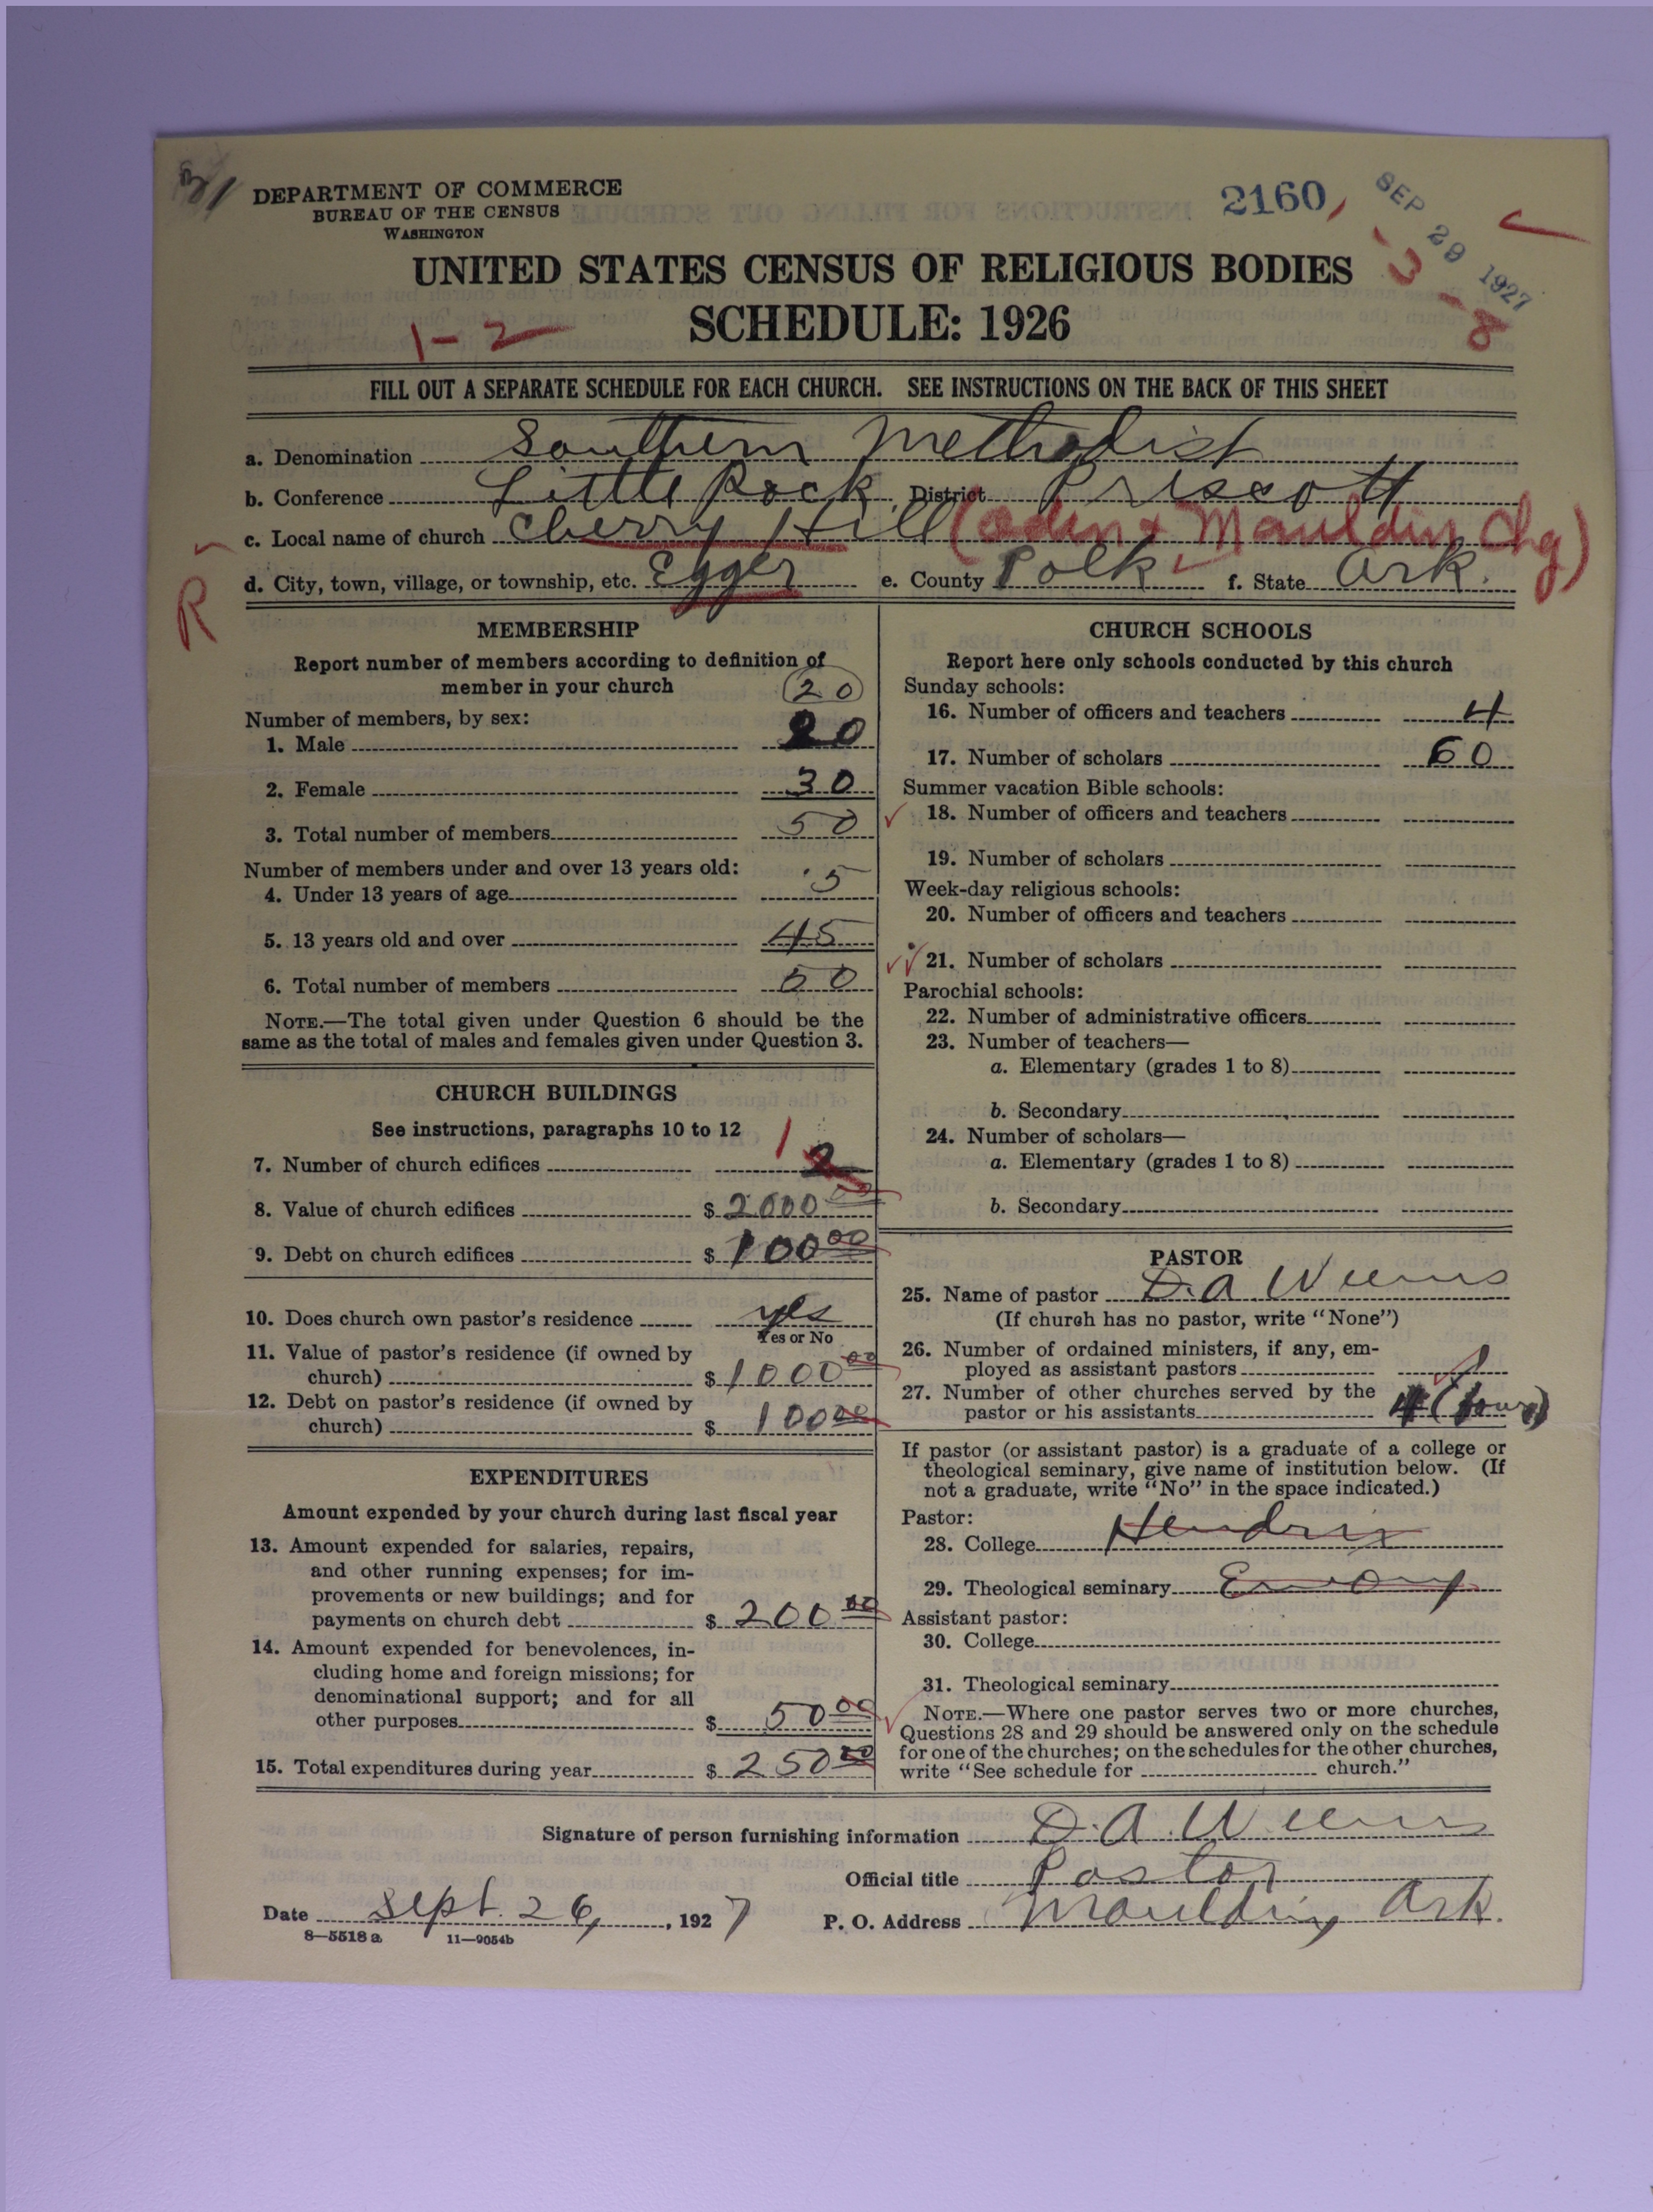 DEPARTMENT OF COMMERCE
BUREAU OF THE CENSUS
WASHINGTON
2160
SEP 29 1927
UNITED STATES CENSUS OF RELIGIOUS BODIES
SCHEDULE: 1926
1-2
3-8
FILL OUT A SEPARATE SCHEDULE FOR EACH CHURCH. SEE INSTRUCTIONS ON THE BACK OF THIS SHEET
a. Denomination Southern Methodist
b. Conference Little Rock District Priscott
c. Local name of church Cherry Hill (Oden & Mauldin Chg)
R
d. City, town, village, or township, etc. Egger e. County Polk f. State Ark.
MEMBERSHIP
Report number of members according to definition of
member in your church
20
Number of members, by sex:
1. Male 20
2. Female 30
3. Total number of members 50
Number of members under and over 13 years old:
4. Under 13 years of age 5
5. 13 years old and over 45
6. Total number of members 50
NOTE.—The total given under Question 6 should be the
same as the total of males and females given under Question 3.
CHURCH BUILDINGS
See instructions, paragraphs 10 to 12
7. Number of church edifices 1 2
8. Value of church edifices $ 2000 00
9. Debt on church edifices $ 100 00
10. Does church own pastor's residence yes
Yes or No
11. Value of pastor's residence (if owned by
church) $ 1000 00
12. Debt on pastor's residence (if owned by
church) $ 100 00
EXPENDITURES
Amount expended by your church during last fiscal year
13. Amount expended for salaries, repairs,
and other running expenses; for im-
provements or new buildings; and for
payments on church debt $ 200 00
14. Amount expended for benevolences, in-
cluding home and foreign missions; for
denominational support; and for all
other purposes $ 50 00
15. Total expenditures during year $ 250 00
CHURCH SCHOOLS
Report here only schools conducted by this church
Sunday schools:
16. Number of officers and teachers 4
17. Number of scholars 60
Summer vacation Bible schools:
18. Number of officers and teachers
19. Number of scholars
Week-day religious schools:
20. Number of officers and teachers
21. Number of scholars
Parochial schools:
22. Number of administrative officers
23. Number of teachers—
a. Elementary (grades 1 to 8)
b. Secondary
24. Number of scholars—
a. Elementary (grades 1 to 8)
b. Secondary
PASTOR
25. Name of pastor D. A Weems
(If church has no pastor, write "None")
26. Number of ordained ministers, if any, em-
ployed as assistant pastors
27. Number of other churches served by the
pastor or his assistants 4 (four)
If pastor (or assistant pastor) is a graduate of a college or
theological seminary, give name of institution below. (If
not a graduate, write "No" in the space indicated.)
Pastor:
28. College Hendrix
29. Theological seminary Emory
Assistant pastor:
30. College
31. Theological seminary
NOTE.—Where one pastor serves two or more churches,
Questions 28 and 29 should be answered only on the schedule
for one of the churches; on the schedules for the other churches,
write "See schedule for church."
Signature of person furnishing information D. A. Weems
Official title Pastor
Date Sept. 26, 1927 P. O. Address Mauldin, Ark.
8—5518 a 11—9054b